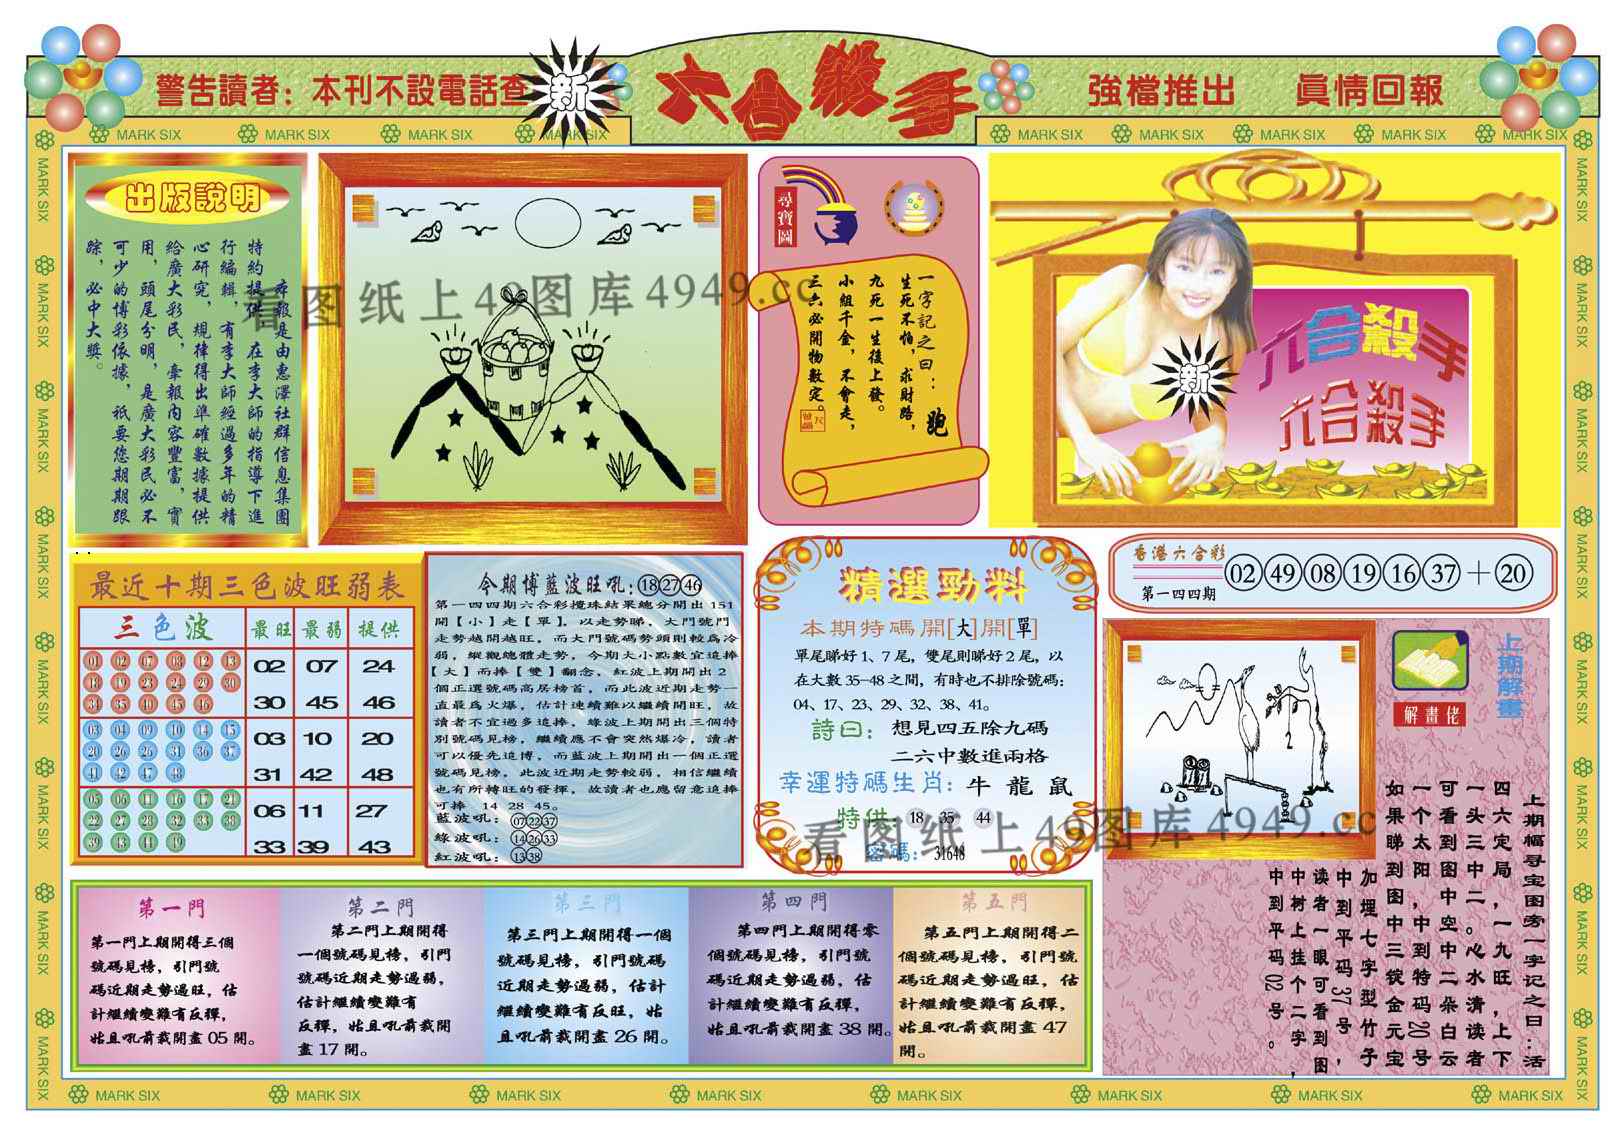 警告讀者：本刊不設電話查
新
六合殺手
強檔推出 真情回報
MARK SIX MARK SIX MARK SIX MARK SIX MARK SIX MARK SIX MARK SIX MARK SIX MARK SIX
出版說明
本報是由惠澤社群信息集團
特約提供，在李大師的指導下進
行編輯，有李大師經過多年的精
心研究，規律得出準確數據提供
給廣大彩民，奉報內容豐富，實
用，頭尾分明，是廣大彩民必不
可少的博彩依據，祇要您期期跟
踪，必中大獎。
尋寶圖
一字記之曰：跑
生死不怕，求財路，
九死一生後上發。
小組千金，不會走，
三六必開物數定。
新
六合殺手
六合殺手
看图纸上49图库4949.cc
最近十期三色波旺弱表
三色波 最旺 最弱 提供
01 02 07 08 12 13
18 19 23 24 29 30
34 35 40 45 46
02 07 24
30 45 46
03 04 09 10 14 15
20 25 26 31 36 37
41 42 47 48
03 10 20
31 42 48
05 06 11 16 17 21
22 27 28 32 33 38
39 43 44 49
06 11 27
33 39 43
今期博藍波旺吼：18 27 46
第一四四期六合彩攪珠結果總分開出151
開【小】走【單】，以走勢睇，大門號門
走勢越開越旺，而大門號碼勢頭則較為冷
弱，縱觀總體走勢，今期大小點數宜追捧
【大】而捧【雙】翻念，紅波上期開出2
個正選號碼高居榜首，而此波近期走勢一
直最為火爆，估計連續難以繼續開旺，故
讀者不宜過多追捧，綠波上期開出三個特
別號碼見榜，繼續應不會突然爆冷，讀者
可以優先追博，而藍波上期開出一個正選
號碼見榜，此波近期走勢較弱，相信繼續
也有所轉旺的發揮，故讀者也應留意追捧
可捧 14 28 45。
藍波吼：07 22 37
綠波吼：14 26 33
紅波吼：13 38
精選勁料
本期特碼開[大]開[單]
單尾睇好1、7尾，雙尾則睇好2尾，以
在大數35-48之間，有時也不排除號碼：
04、17、23、29、32、38、41。
詩曰：想見四五除九碼
二六中數進兩格
幸運特碼生肖：牛 龍 鼠
特供：18 35 44
密碼：31648
看图纸上49图库4949.cc
香港六合彩
第一四四期
02 49 08 19 16 37 + 20
上期解畫
解畫佬
上期幅寻宝图旁一字记之曰：活
四六定局，一九旺，上下
一头三中二。心水清读者
可看到图中空中二朵白云
一个太阳，中到特码20号
如果睇到图中三锭金元宝
加埋七字型竹子
中到平码37号，
读者一眼可看到图
中树上挂个二字，
中到平码02号。
第一門
第一門上期開得三個
號碼見榜，引門號
碼近期走勢過旺，估
計繼續變難有反彈，
姑且吼前裁開盡05開。
第二門
第二門上期開得
一個號碼見榜，引門
號碼近期走勢過弱，
估計繼續變難有
反彈，姑且吼前裁開
盡17開。
第三門
第三門上期開得一個
號碼見榜，引門號碼
近期走勢過弱，估計
繼續變難有反旺，姑
且吼前裁開盡26開。
第四門
第四門上期開得零
個號碼見榜，引門號
碼近期走勢過弱，估
計繼續變難有反彈，
姑且吼前裁開盡38開。
第五門
第五門上期開得二
個號碼見榜，引門號
碼近期走勢過旺，估
計繼續變難有反彈，
姑且吼前裁開盡47
開。
MARK SIX MARK SIX MARK SIX MARK SIX MARK SIX MARK SIX MARK SIX MARK SIX